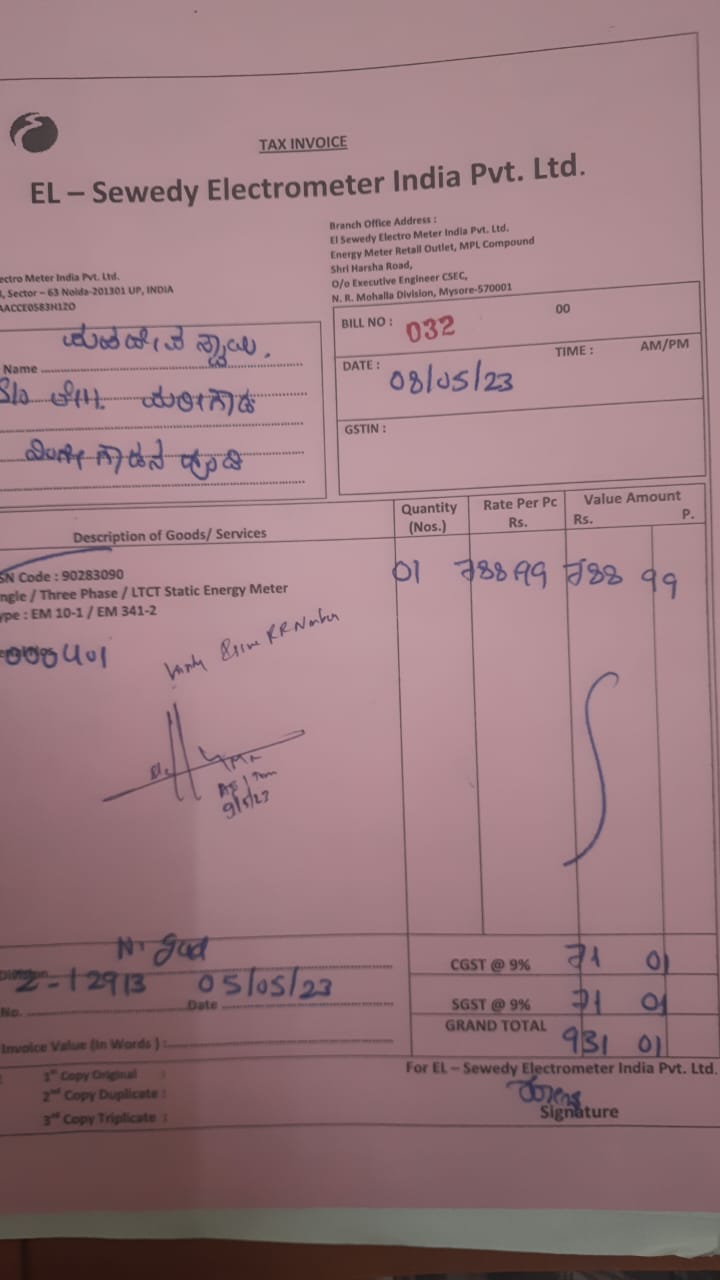 TAX INVOICE
EL – Sewedy Electrometer India Pvt. Ltd.
Branch Office Address :
El Sewedy Electro Meter India Pvt. Ltd.
Energy Meter Retail Outlet, MPL Compound
Shri Harsha Road,
O/o Executive Engineer CSEC,
N. R. Mohalla Division, Mysore-570001
ectro Meter India Pvt. Ltd.
, Sector – 63 Noida-201301 UP, INDIA
AACCE0583H1ZO
BILL NO : 032 00
DATE : 08/05/23 TIME : AM/PM
GSTIN :
Name
S/o
Description of Goods/ Services Quantity (Nos.) Rate Per Pc Rs. Value Amount Rs. P.
SN Code : 90283090 01 788 99 788 99
ngle / Three Phase / LTCT Static Energy Meter
ype : EM 10-1 / EM 341-2
000401
RR Number
9/5/23
CGST @ 9% 71 01
2-12913 05/05/23
No. Date
SGST @ 9% 71 01
GRAND TOTAL 931 01
Invoice Value (In Words ) :
For EL – Sewedy Electrometer India Pvt. Ltd.
1st Copy Original :
2nd Copy Duplicate :
3rd Copy Triplicate :
Signature